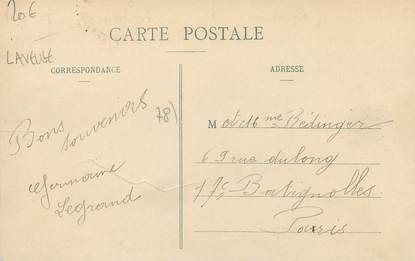 20€
LAVEUSE
CARTE POSTALE
CORRESPONDANCE
ADRESSE
Bons
souvenirs
78)
Germaine
Legrand
M et Mme Bédinger
69 rue dulong
17e Batignolles
Paris